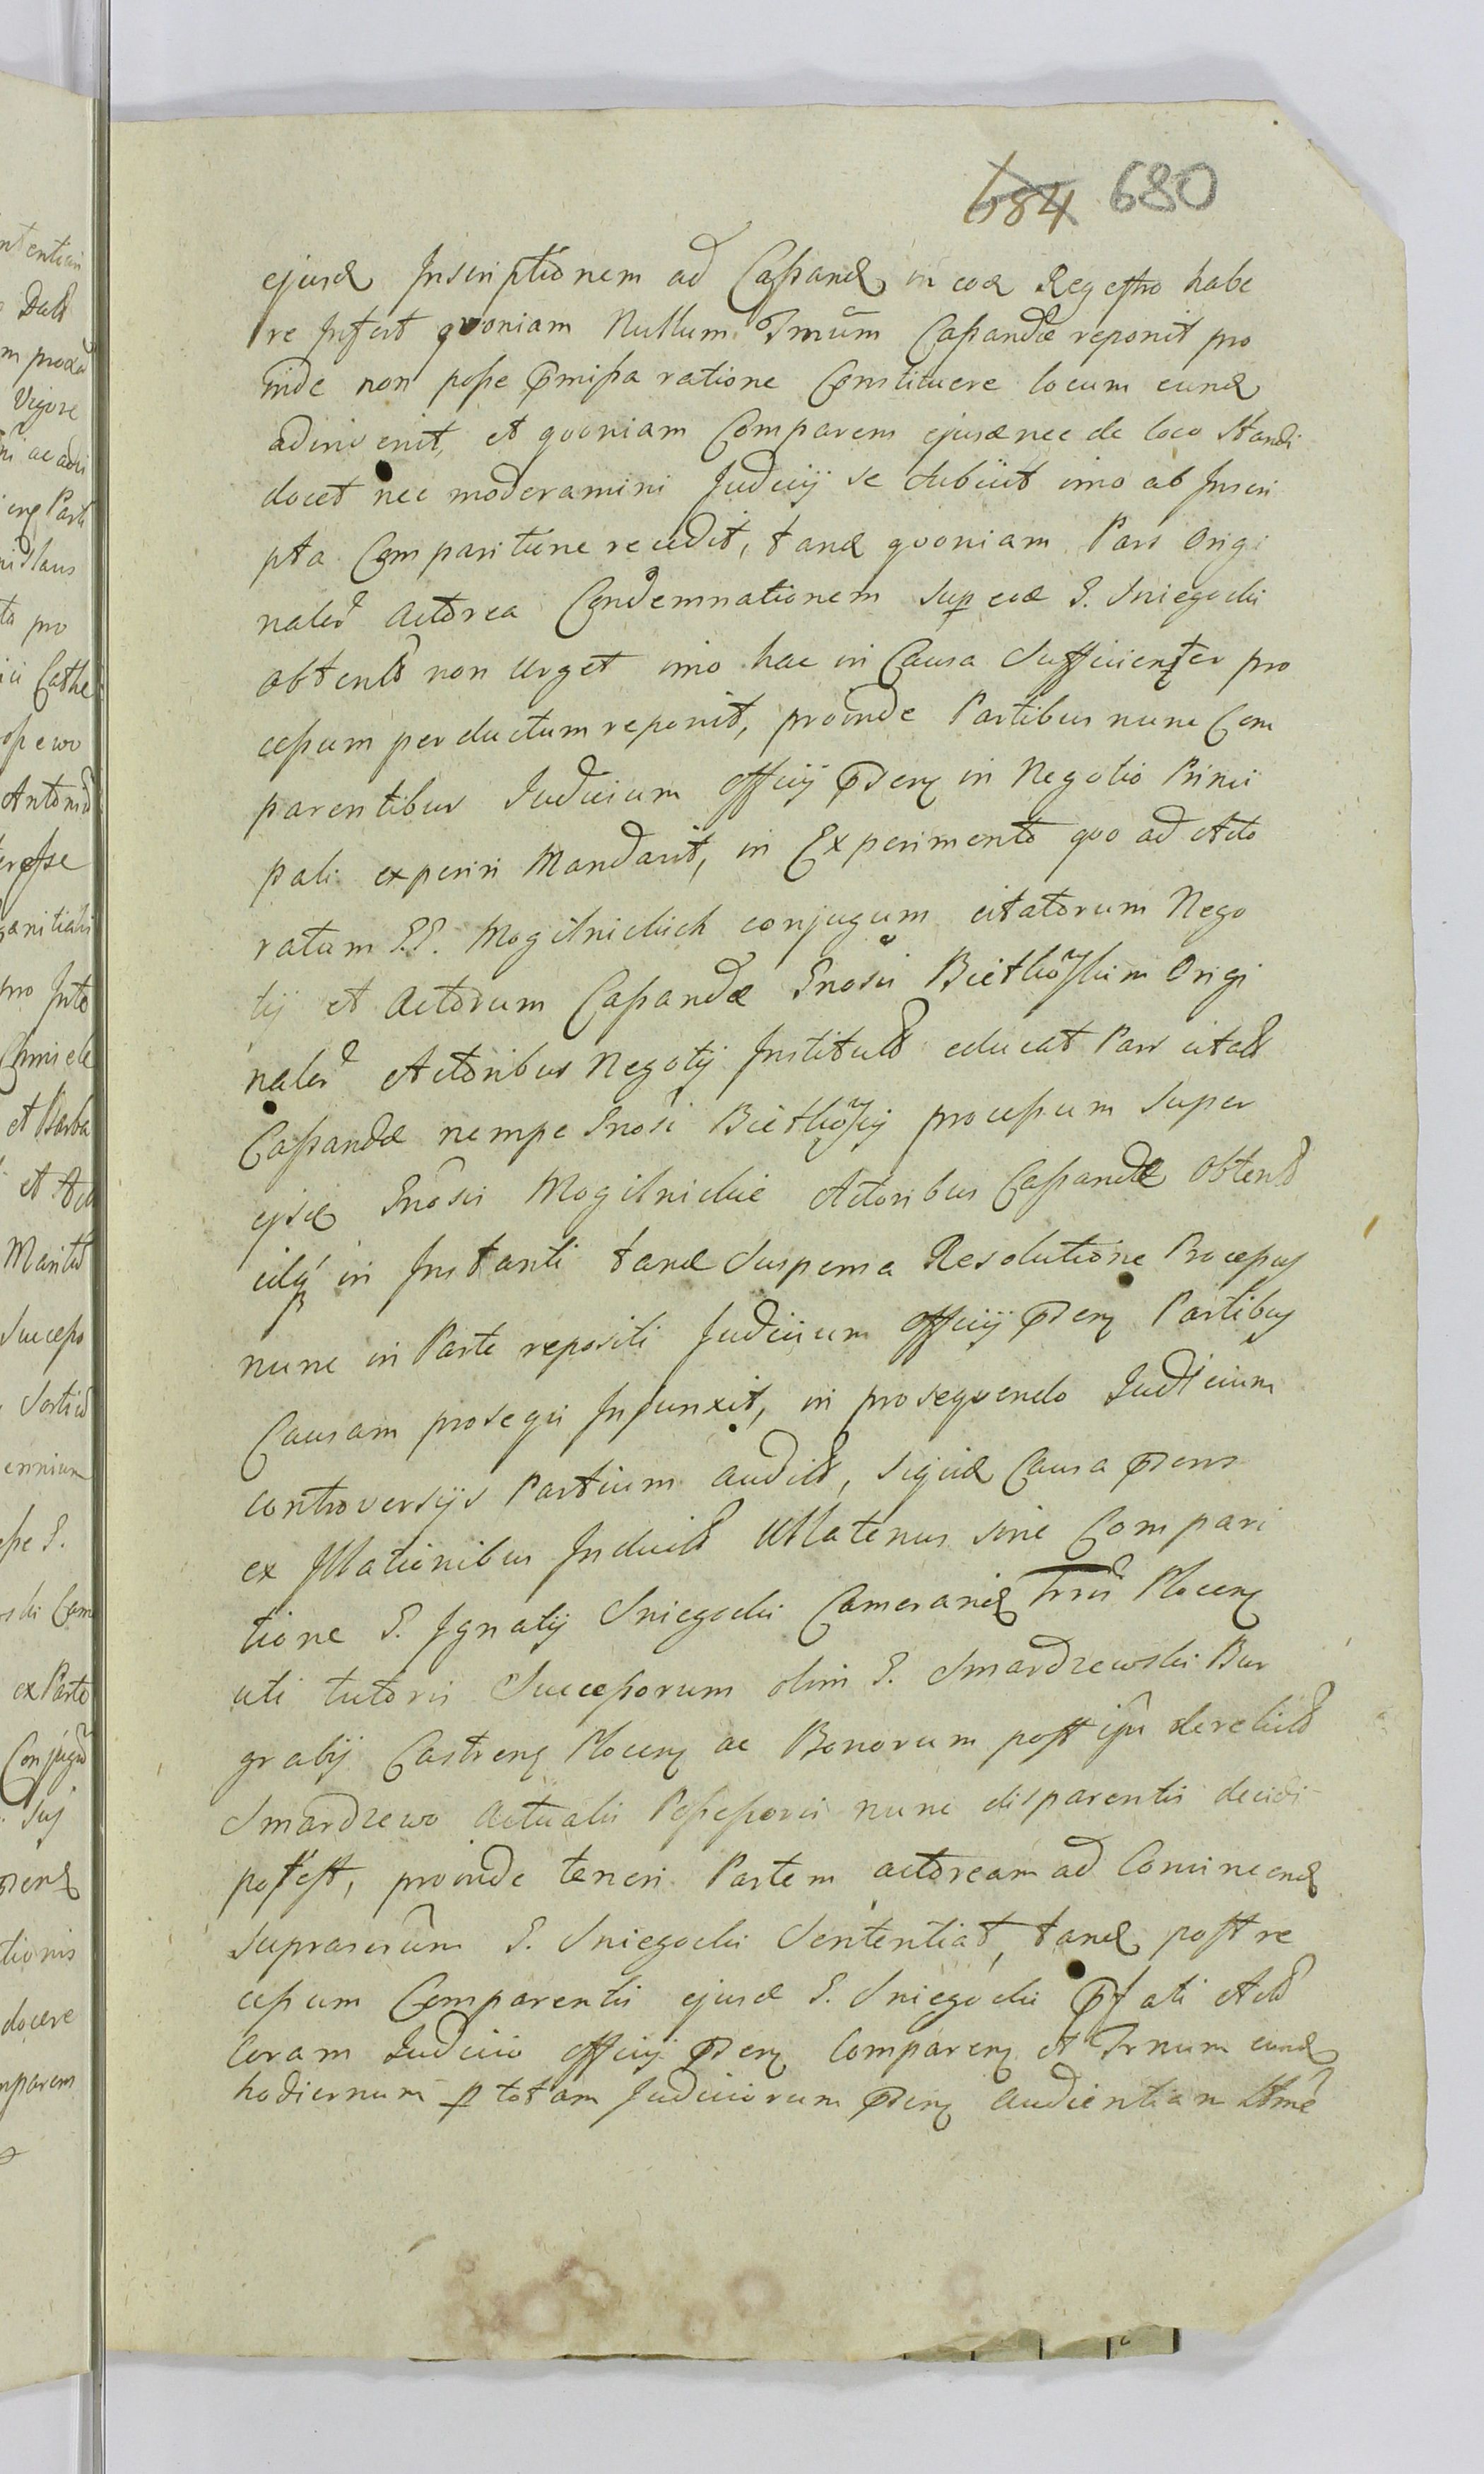 684 680
ejusd Inscriptionem ad Cassand in eod Regestro habe
re Infert quoniam Nullum Trnum Cassandae reponit pro
inde non posse pmissa ratione Constituere locum eund
adinvenit, et quoniam Comparens ejusd nec de loco Standi
docet nec moderamini Judicij se Subiicit imo ab Inscri
pta Comparitione recedit, tand quoniam Pars Origi
nalr Actorea Condemnationem sup eod G. Sniegocki
obtent non Urget imo hac in Causa Sufficienter pro
cessum perductum reponit, proinde Partibus nunc Com
parentibus Judicium Officij pden in Negotio Princi
pali experiri Mandavit, in Experimento quo ad Acto
ratum G.G. Mogilnickich conjugum citatorum Nego
tij et Actorum Cassandae Gnosis Bietkowskim Origi
nalr Actoribus Negotij Institut educat Pars citat
Cassandae nempe Gnosi Bietkowscy processum super
ejsd Gnosis Mogilnickie Actoribus Cassandae Obtent
in Instanti tand Suspensa Resolutione Processus
nunc in Parte repositi Judicium officij pden Partibus
Causam prosequi Injunxit, in prosequendo Judicium
controversijs Partium audit, siquid Causa pdens
ex Illationibus Induct Ullatenus sine Compari
tione G. Ignatij Sniegocki Camerarij Trris Plocen
uti tutoris Successorum olim G. Smardzewski Bur
grabij Castren Plocen ac Bonorum post ipm derelict
Smardzewo Actualis Possessoris nunc disparentis decidi
potest, proinde teneri Partem actoream ad Convincend
suprascrum G. Sniegocki Sententiat, tand post re
cessum Comparentis ejusd G. Sniegocki pfati Act
Coram Judicio officij pden Comparen et Trnum eund
hodiernum p totam Judiciorum pden audientiam